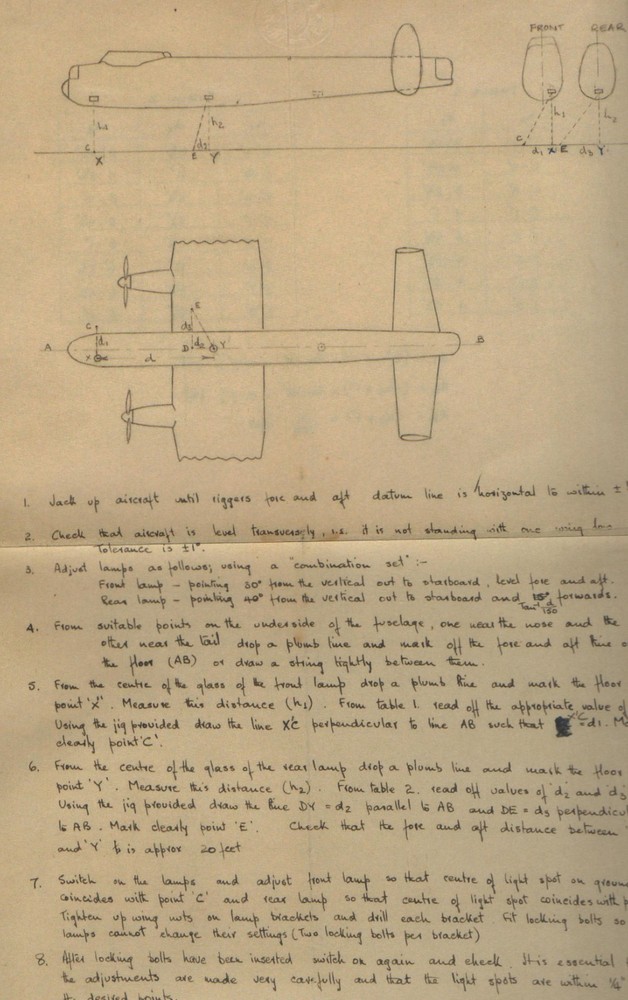 FRONT REAR
h1 h2 h1 h2
C X E d3 Y C d1 X E d3 Y
E
C d3
A d1 D d2 Y B
X d
1. Jack up aircraft until riggers fore and aft datum line is horizontal to within ±
2. Check that aircraft is level transversely, i.e. it is not standing with one wing low
Tolerance is ±1°.
3. Adjust lamps as follows; using a "combination set" :-
Front lamp - pointing 30° from the vertical out to starboard, level fore and aft.
Rear lamp - pointing 40° from the vertical out to starboard and 15° forwards.
Tan⁻¹ d/150
4. From suitable points on the underside of the fuselage, one near the nose and the
other near the tail drop a plumb line and mark off the fore and aft line o
the floor (AB) or draw a string tightly between them.
5. From the centre of the glass of the front lamp drop a plumb line and mark the floor
point 'X'. Measure this distance (h1). From table 1. read off the appropriate value of
Using the jig provided draw the line XC perpendicular to line AB such that XC = d1. M
clearly point 'C'.
6. From the centre of the glass of the rear lamp drop a plumb line and mark the floor
point 'Y'. Measure this distance (h2). From table 2. read off values of d2 and d3
Using the jig provided draw the line DY = d2 parallel to AB and DE = d3 perpendicu
to AB. Mark clearly point 'E'. Check that the fore and aft distance between
and 'Y' is approx 20 feet
7. Switch on the lamps and adjust front lamp so that centre of light spot on groun
coincides with point 'C' and rear lamp so that centre of light spot coincides with p
Tighten up wing nuts on lamp brackets and drill each bracket. Fit locking bolts so
lamps cannot change their settings (Two locking bolts per bracket)
8. After locking bolts have been inserted switch on again and check. It is essential
the adjustments are made very carefully and that the light spots are within ¼"
the desired points.